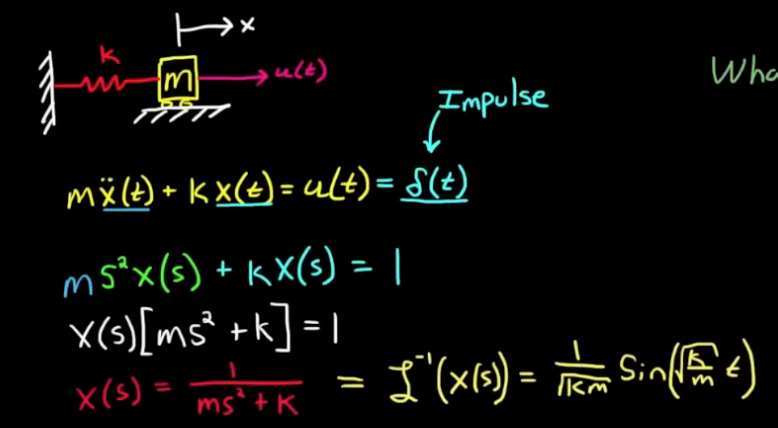 x
k
m
u(t)
Wha
Impulse
mẍ(t) + kx(t) = u(t) = δ(t)
ms²X(s) + kX(s) = 1
X(s)[ms² + k] = 1
X(s) = 1/(ms² + k) = ℒ⁻¹(X(s)) = 1/√km Sin(√(k/m) t)